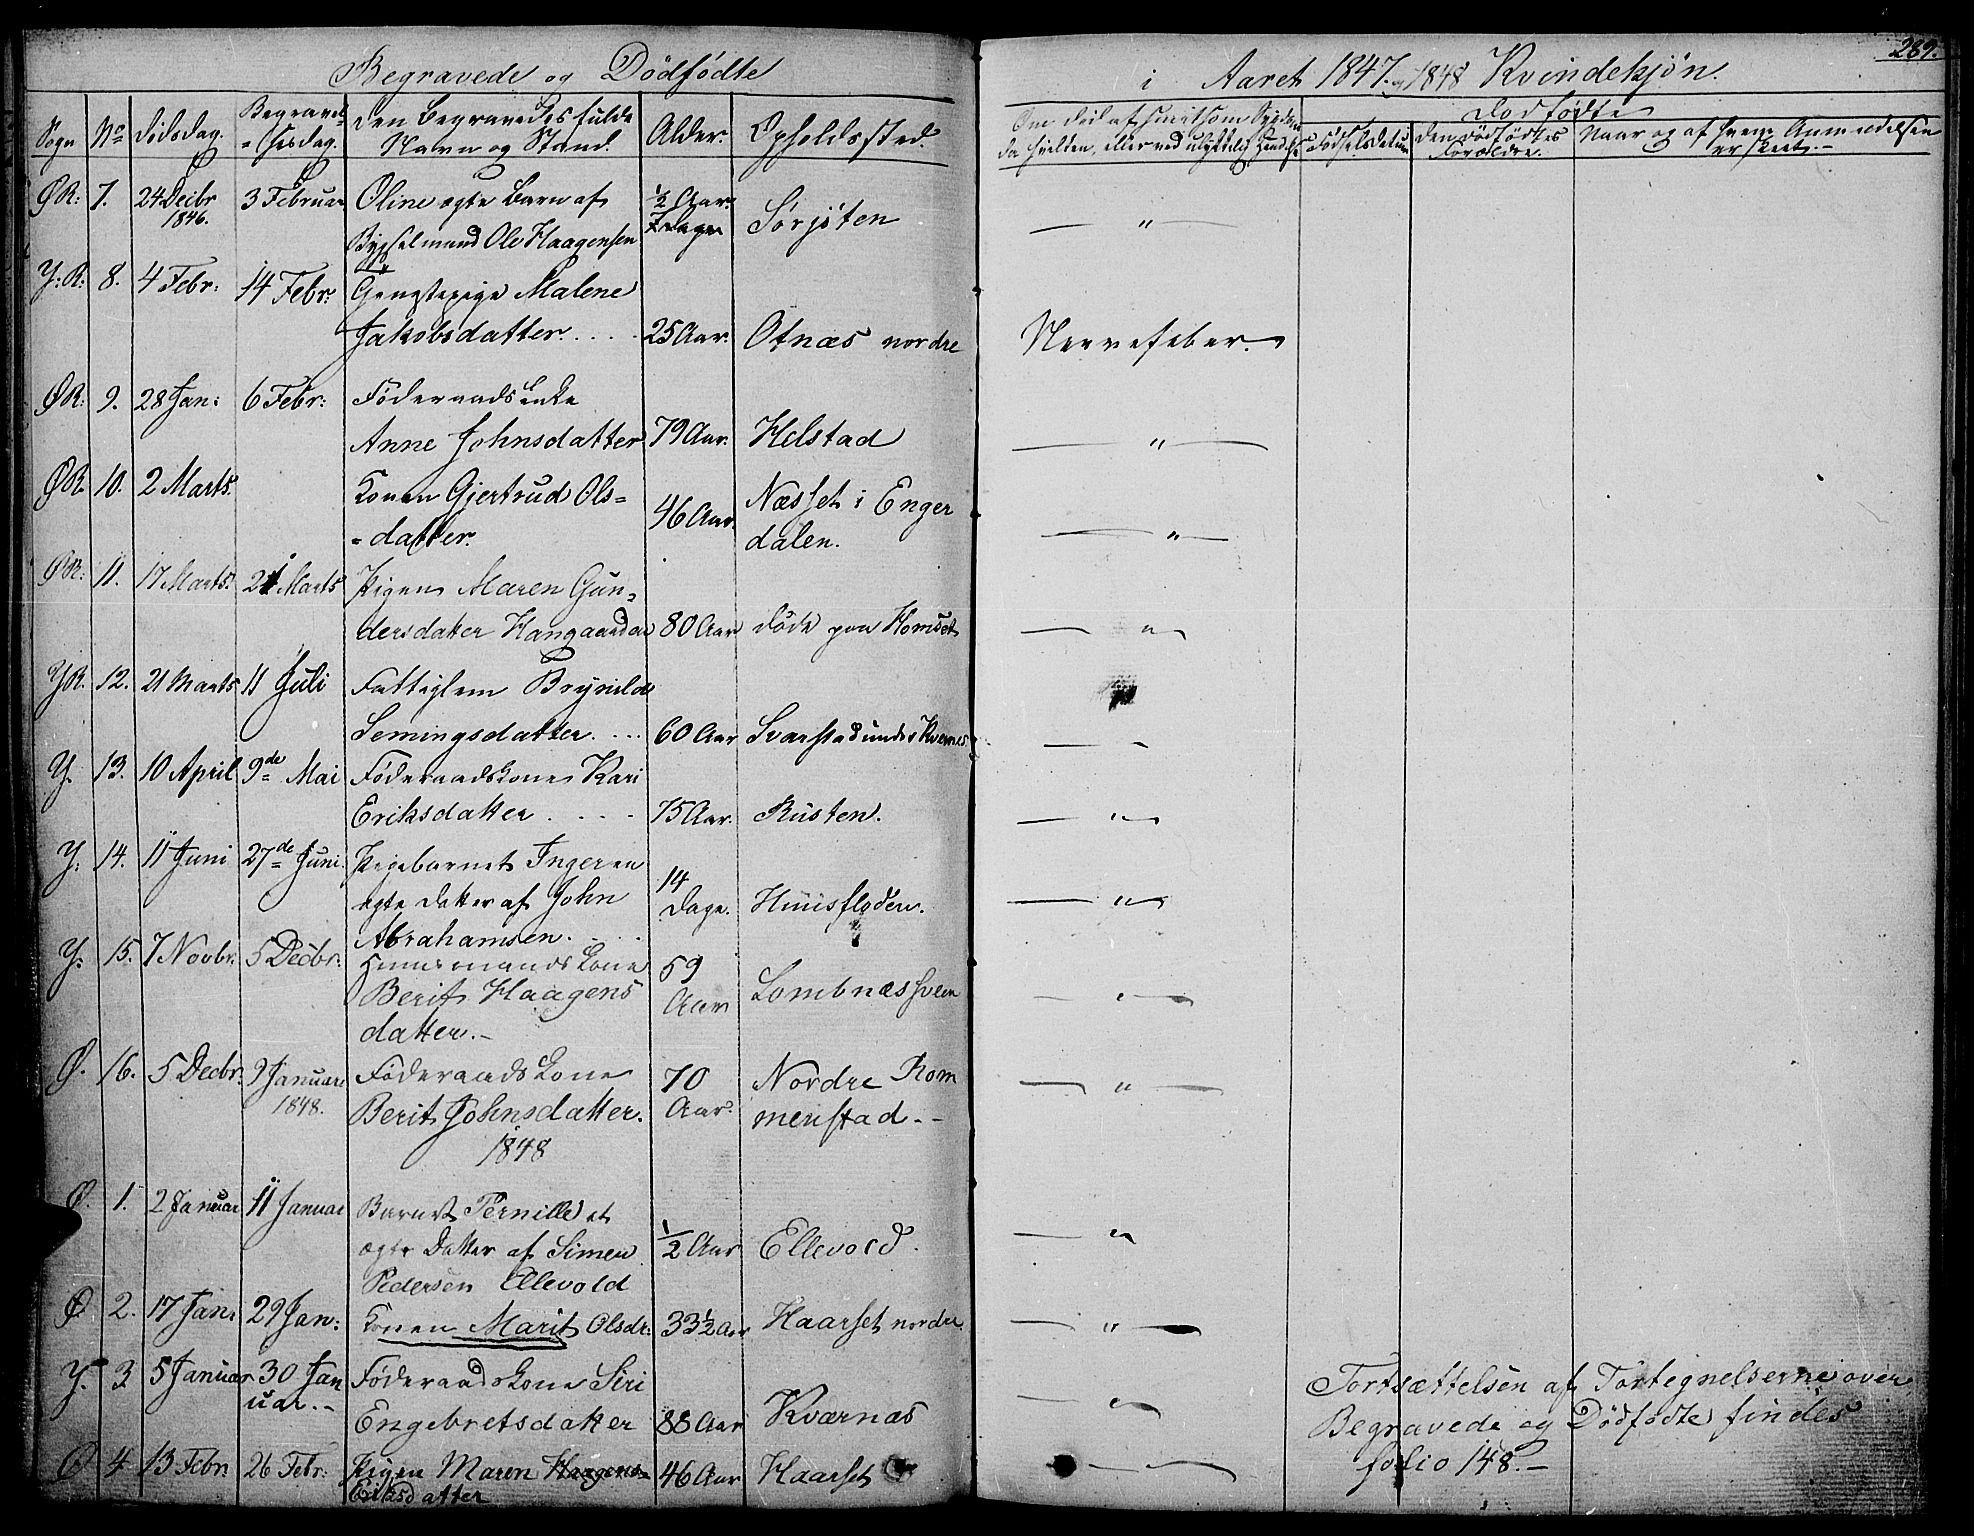 Begravede og Dödfödte
Sogn No Dödsdag. Begravel= =sesdag. Den Begravedes fulde Navn og Stand. Alder. Opholdssted.
ØR: 7. 24 Decbr 1846. 3 Februar Oline ægte Barn af ½ Aar.
Bygselmand Ole Haagensen 7 Dage Sørjöten
Y:R: 8. 4 Febr: 14 Febr: Malene
Jakobsdatter. . . . . 25 Aar. Otnæs nordre
ØR: 9. 28 Jan: 6 Febr: Föderaads Enke
Anne Johnsdatter 79 Aar. Helstad
ØR. 10. 2 Marts. Konen Gjertrud Ols= 46 Aar. Næsset i Enger
=datter. dalen.
ØR: 11. 17 Marts. 21 Marts Pigen Maren Gun=
dersdatter Hangaarden 80 Aar döde paa Homset
YR. 12. 21 Marts 11 Juli Fattiglem Brynild
Semingsdatter. . . . 60 Aar Svarstad under Kvernes.
Y. 13. 10 April 9de Mai Föderaadskone Kari
Eriksdatter . . . . 75 Aar. Rusten.
Y: 14. 11 Juni 27de Juni. Pigebarnet Ingeren
ægte Datter af John 14 Dage. Huusfloden.
Abrahamsen. . . .
Y: 15. 7 Novbr. 5 Decbr: Huusmands Kone
Berit Haagens 59 Aar Lombnæshveen
datter.-
Ø. 16. 5 Decbr. 9 Januar 1848. Föderaads Kone 70 Nordre Rom
Berit Johnsdatter. Aar. menstad.-
1848
Ø. 1. 2 Januar 11 Januar Barnet Pernille et
ægte Datter af Simen ½ Aar Ellevold.
Pedersen Ellevold
Ø 2. 17 Jan: 29 Jan: Konen Marit Olsdr: 33½ Aar Haarset nordre
Y. 3. 5 Januar 30 Januar.- Föderaadskone Siri
Engebretsdatter 88 Aar Kværnæs
Ø 4 13 Febr: 26 Febr: Pigen Maren Haagens= 46 Aar Haarset
Eriksdatter
i Aaret 1847. og 1848 Kvindekjön.
289.
Dödfödte
Födselsdatum Den Dödfödtes Forældre. Naar og af hvem Anmeldelsen er skeet.-
"
Nervefeber.
"
"
"
"
"
"
"
"
"
Fortsættelsen af Fortegnelserne over
Begravede og Dödfödte findes
folio 148.-